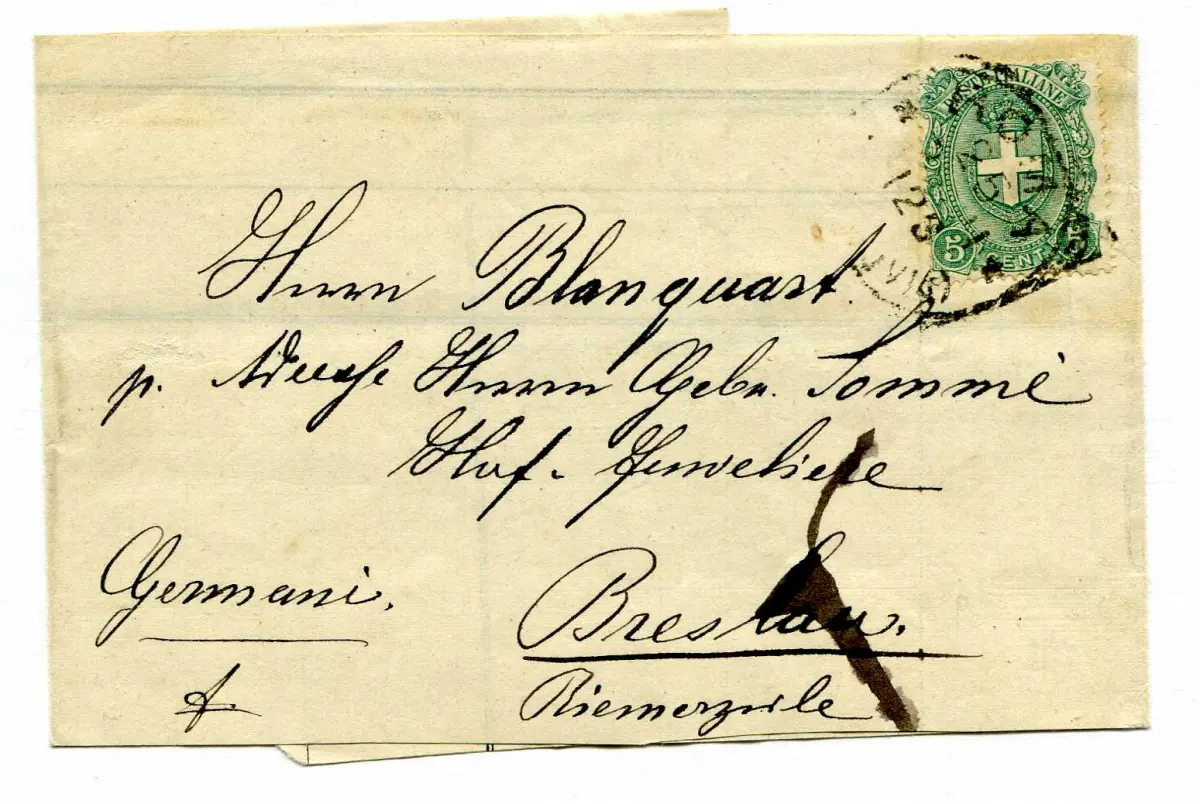 POSTE ITALIANE
5 CENT. 5
Herrn Blanquart.
p. Adresse Herrn Gebr. Sommé
Hof-Juweliere
Germani. Breslau.
Riemerzeile